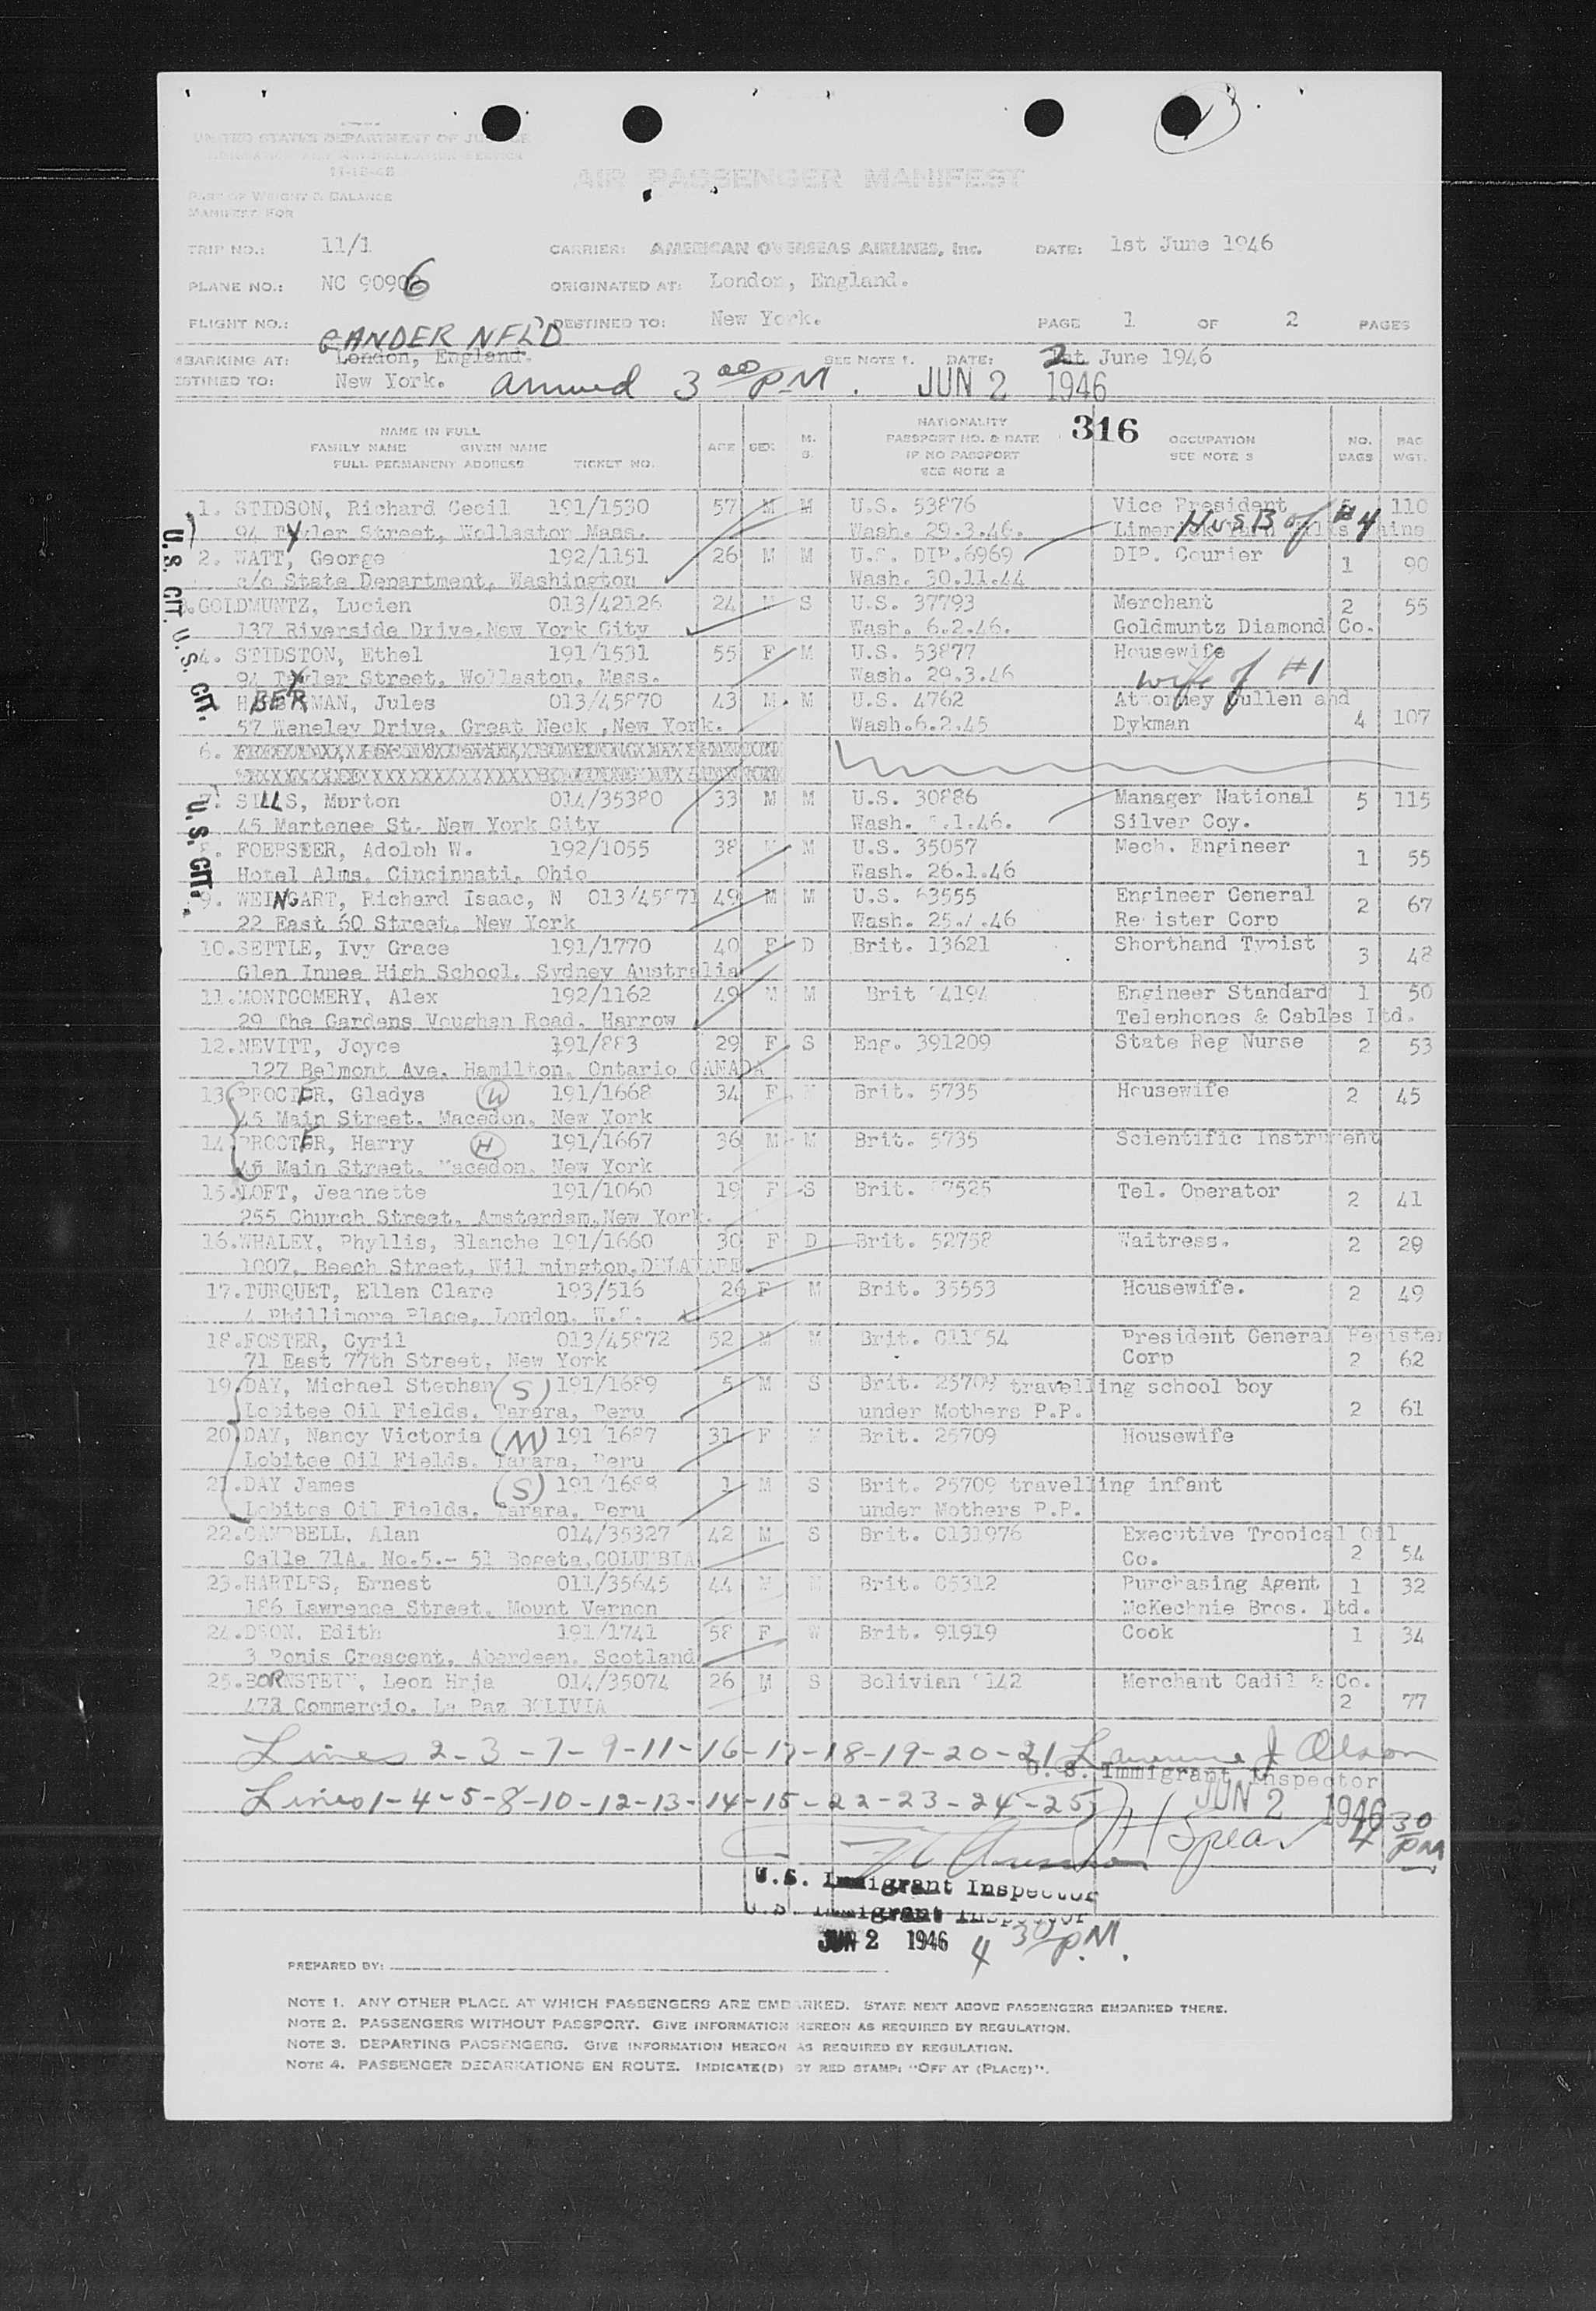 UNITED STATES DEPARTMENT OF JUSTICE
11-15-42
AIR PASSENGER MANIFEST
PART OF WEIGHT & BALANCE
MANIFEST FOR
TRIP NO.: 11/1 CARRIER: AMERICAN OVERSEAS AIRLINES, Inc. DATE: 1st June 1946
PLANE NO.: NC 90906 ORIGINATED AT: London, England.
FLIGHT NO.: DESTINED TO: New York. PAGE 1 OF 2 PAGES
GANDER NFL'D
MBARKING AT: London, England. SEE NOTE 1. DATE: 2 1st June 1946
ESTINED TO: New York. arrived 3 00 PM. JUN 2 1946
316
NAME IN FULL
FAMILY NAME GIVEN NAME
FULL PERMANENT ADDRESS TICKET NO.
AGE SEX M. S.
NATIONALITY
PASSPORT NO. & DATE
IF NO PASSPORT
SEE NOTE 2
OCCUPATION
SEE NOTE 3
NO. BAGS
BAG WGT.
U.S. CIT. U.S. CIT.
1. STIDSON, Richard Cecil 191/1530 57 M M U.S. 53876 Vice President 5 110
94 Tyler Street, Wollaston Mass. Wash. 29.3.46. Limerick Yarn Mills Maine
HUSB of #4
2. WATT, George 192/1151 26 M M U.S. DIP.6969 DIP. Courier 1 90
c/o State Department, Washington Wash. 30.11.44
3. GOLDMUNTZ, Lucien 013/42126 24 M S U.S. 37793 Merchant 2 55
137 Riverside Drive, New York City Wash. 6.2.46. Goldmuntz Diamond Co.
4. STIDSTON, Ethel 191/1531 55 F M U.S. 53877 Housewife
94 Tyler Street, Wollaston, Mass. Wash. 29.3.46 wife of #1
HABERMAN, Jules 013/45870 43 M M U.S. 4762 Attorney Cullen and
57 Weneley Drive, Great Neck ,New York. Wash.6.2.45 Dykman 4 107
6.
U.S. CIT.
7. SILLS, Morton 014/35380 33 M M U.S. 30886 Manager National 5 115
45 Martenee St. New York City Wash. .1.46. Silver Coy.
8. FOERSTER, Adolph W. 192/1055 38 M M U.S. 35057 Mech. Engineer 1 55
Hotel Alms, Cincinnati, Ohio Wash. 26.1.46
9. WEINGART, Richard Isaac, N 013/45871 49 M M U.S. 63555 Engineer General 2 67
22 East 60 Street, New York Register Corp
10. SETTLE, Ivy Grace 191/1770 40 F D Brit. 13621 Shorthand Typist 3 48
Glen Innee High School, Sydney Australia
11. MONTGOMERY, Alex 192/1162 49 M M Brit 4194 Engineer Standard 1 50
29 The Gardens Vaughan Road, Harrow Telephones & Cables Ltd.
12. NEVITT, Joyce 191/883 29 F S Eng. 391209 State Reg Nurse 2 53
127 Belmont Ave. Hamilton, Ontario CANADA
13. PROCTER, Gladys (W) 191/1668 34 F M Brit. 5735 Housewife 2 45
45 Main Street, Macedon, New York
14. PROCTER, Harry (H) 191/1667 36 M M Brit. 5735 Scientific Instrument
45 Main Street, Macedon, New York
15. LOFT, Jeannette 191/1060 19 F S Brit. 7525 Tel. Operator 2 41
255 Church Street, Amsterdam, New York.
16. WHALEY, Phyllis, Blanche 191/1660 30 F D Brit. 52758 Waitress. 2 29
1007, Beech Street, Wil mington, DELAWARE.
17. TURQUET, Ellen Clare 193/516 26 F M Brit. 35553 Housewife. 2 49
4 Phillimore Place, London, W.8.
18. FOSTER, Cyril 013/45872 52 M M Brit. President General Register
71 East 77th Street, New York Corp 2 62
19. DAY, Michael Stephan (S) 191/1689 5 M S Brit. 25709 travelling school boy
Lobitee Oil Fields, Tarara, Peru under Mothers P.P. 2 61
20. DAY, Nancy Victoria (M) 191/1687 31 F M Brit. 25709 Housewife
Lobitee Oil Fields, Tarara, Peru
21. DAY James (S) 191/1688 1 M S Brit. 25709 travelling infant
Lobitos Oil Fields, Tarara, Peru under Mothers P.P.
22. CAMPBELL, Alan 014/35327 42 M S Brit. C131976 Executive Tropical Oil
Calle 71A, No.5.- 51 Bogeta, COLUMBIA Co. 2 54
23. HARTLES, Ernest 011/35645 44 M M Brit. C5312 Purchasing Agent 1 32
186 Lawrence Street, Mount Vernon McKechnie Bros. Ltd.
24. DEON, Edith 191/1741 58 F W Brit. 91919 Cook 1 34
3 Ponis Crescent, Aberdeen, Scotland
25. BORNSTEIN, Leon Hrja 014/35074 26 M S Bolivian 142 Merchant Cadil & Co.
473 Commercio, La Paz BOLIVIA 2 77
Lines 2-3-7-9-11-16-17-18-19-20-21 Lawrence J Olson
U. S. Immigrant Inspector
Lines 1-4-5-8-10-12-13-14-15-22-23-24-25 JUN 2 1946
Spear 4 30 PM
U.S. Immigrant Inspector
U.S. Immigrant Inspector
JUN 2 1946 4 30 PM.
PREPARED BY:
NOTE 1. ANY OTHER PLACE AT WHICH PASSENGERS ARE EMBARKED. STATE NEXT ABOVE PASSENGERS EMBARKED THERE.
NOTE 2. PASSENGERS WITHOUT PASSPORT. GIVE INFORMATION HEREON AS REQUIRED BY REGULATION.
NOTE 3. DEPARTING PASSENGERS. GIVE INFORMATION HEREON AS REQUIRED BY REGULATION.
NOTE 4. PASSENGER DEBARKATIONS EN ROUTE. INDICATE(D) BY RED STAMP: "OFF AT (PLACE)".